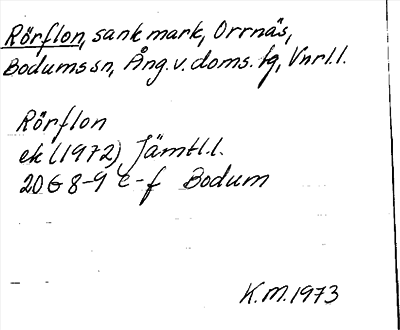 Rörflon, sank mark, Orrnäs,
Bodums sn, Ång. v. doms. tg, Vnrl. l.
Rörflon
ek (1972) Jämtl. l.
20G 8-9 e-f Bodum
K.M. 1973